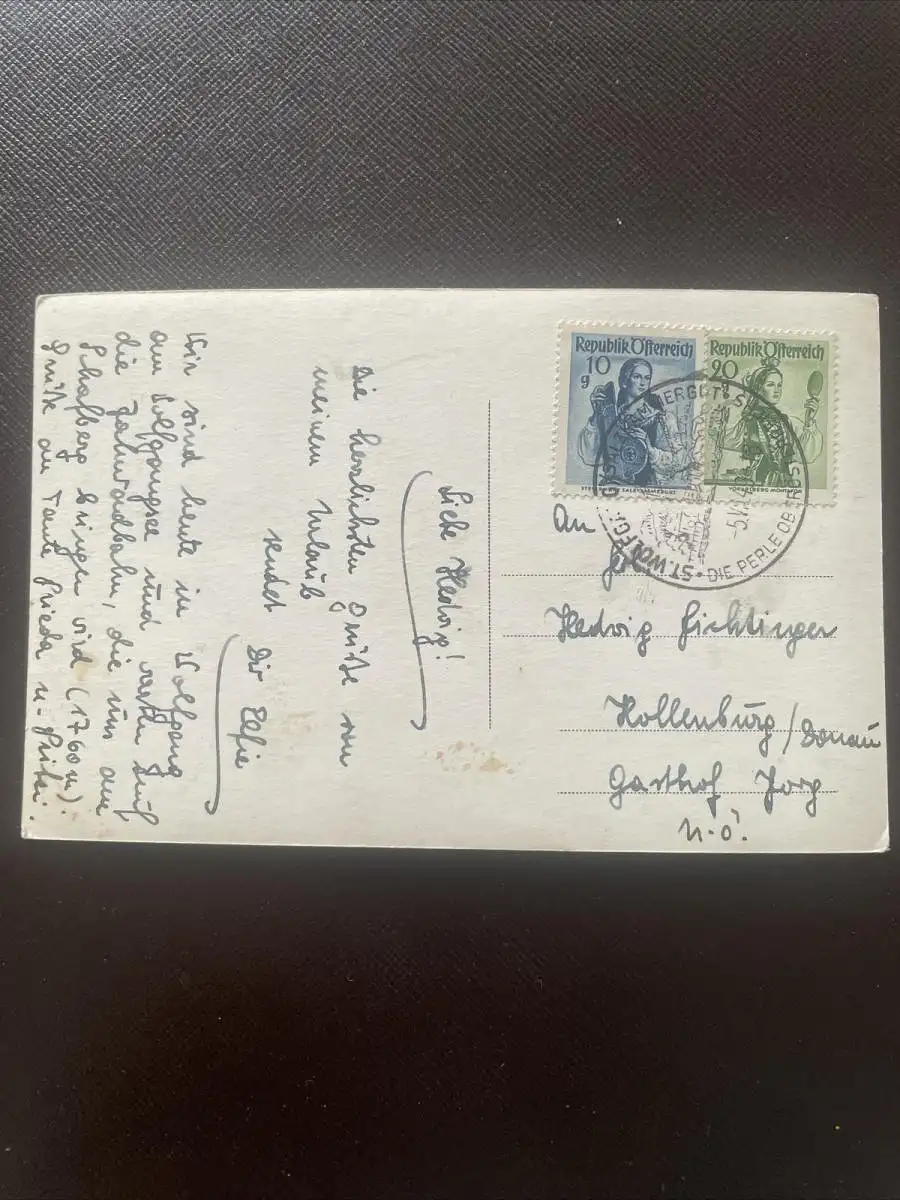 Liebe Hedwig!
Die herzlichsten Grüße von
meinem Urlaub
sendet
Dir Elfie
Wir sind heute in Wolfgang
am Wolfgangsee und warten auf
die Zahnradbahn, die uns am
Schafberg bringen wird (1760 m).
Grüße an Tante Frieda u.
Republik Österreich
10
g
Republik Österreich
20
VORARLBERG MONTAFON
ST. WOLFGANG
DIE PERLE OB
An
Hedwig Fichtinger
Hollenburg / Donau
Gasthof Jorg
N.Ö.